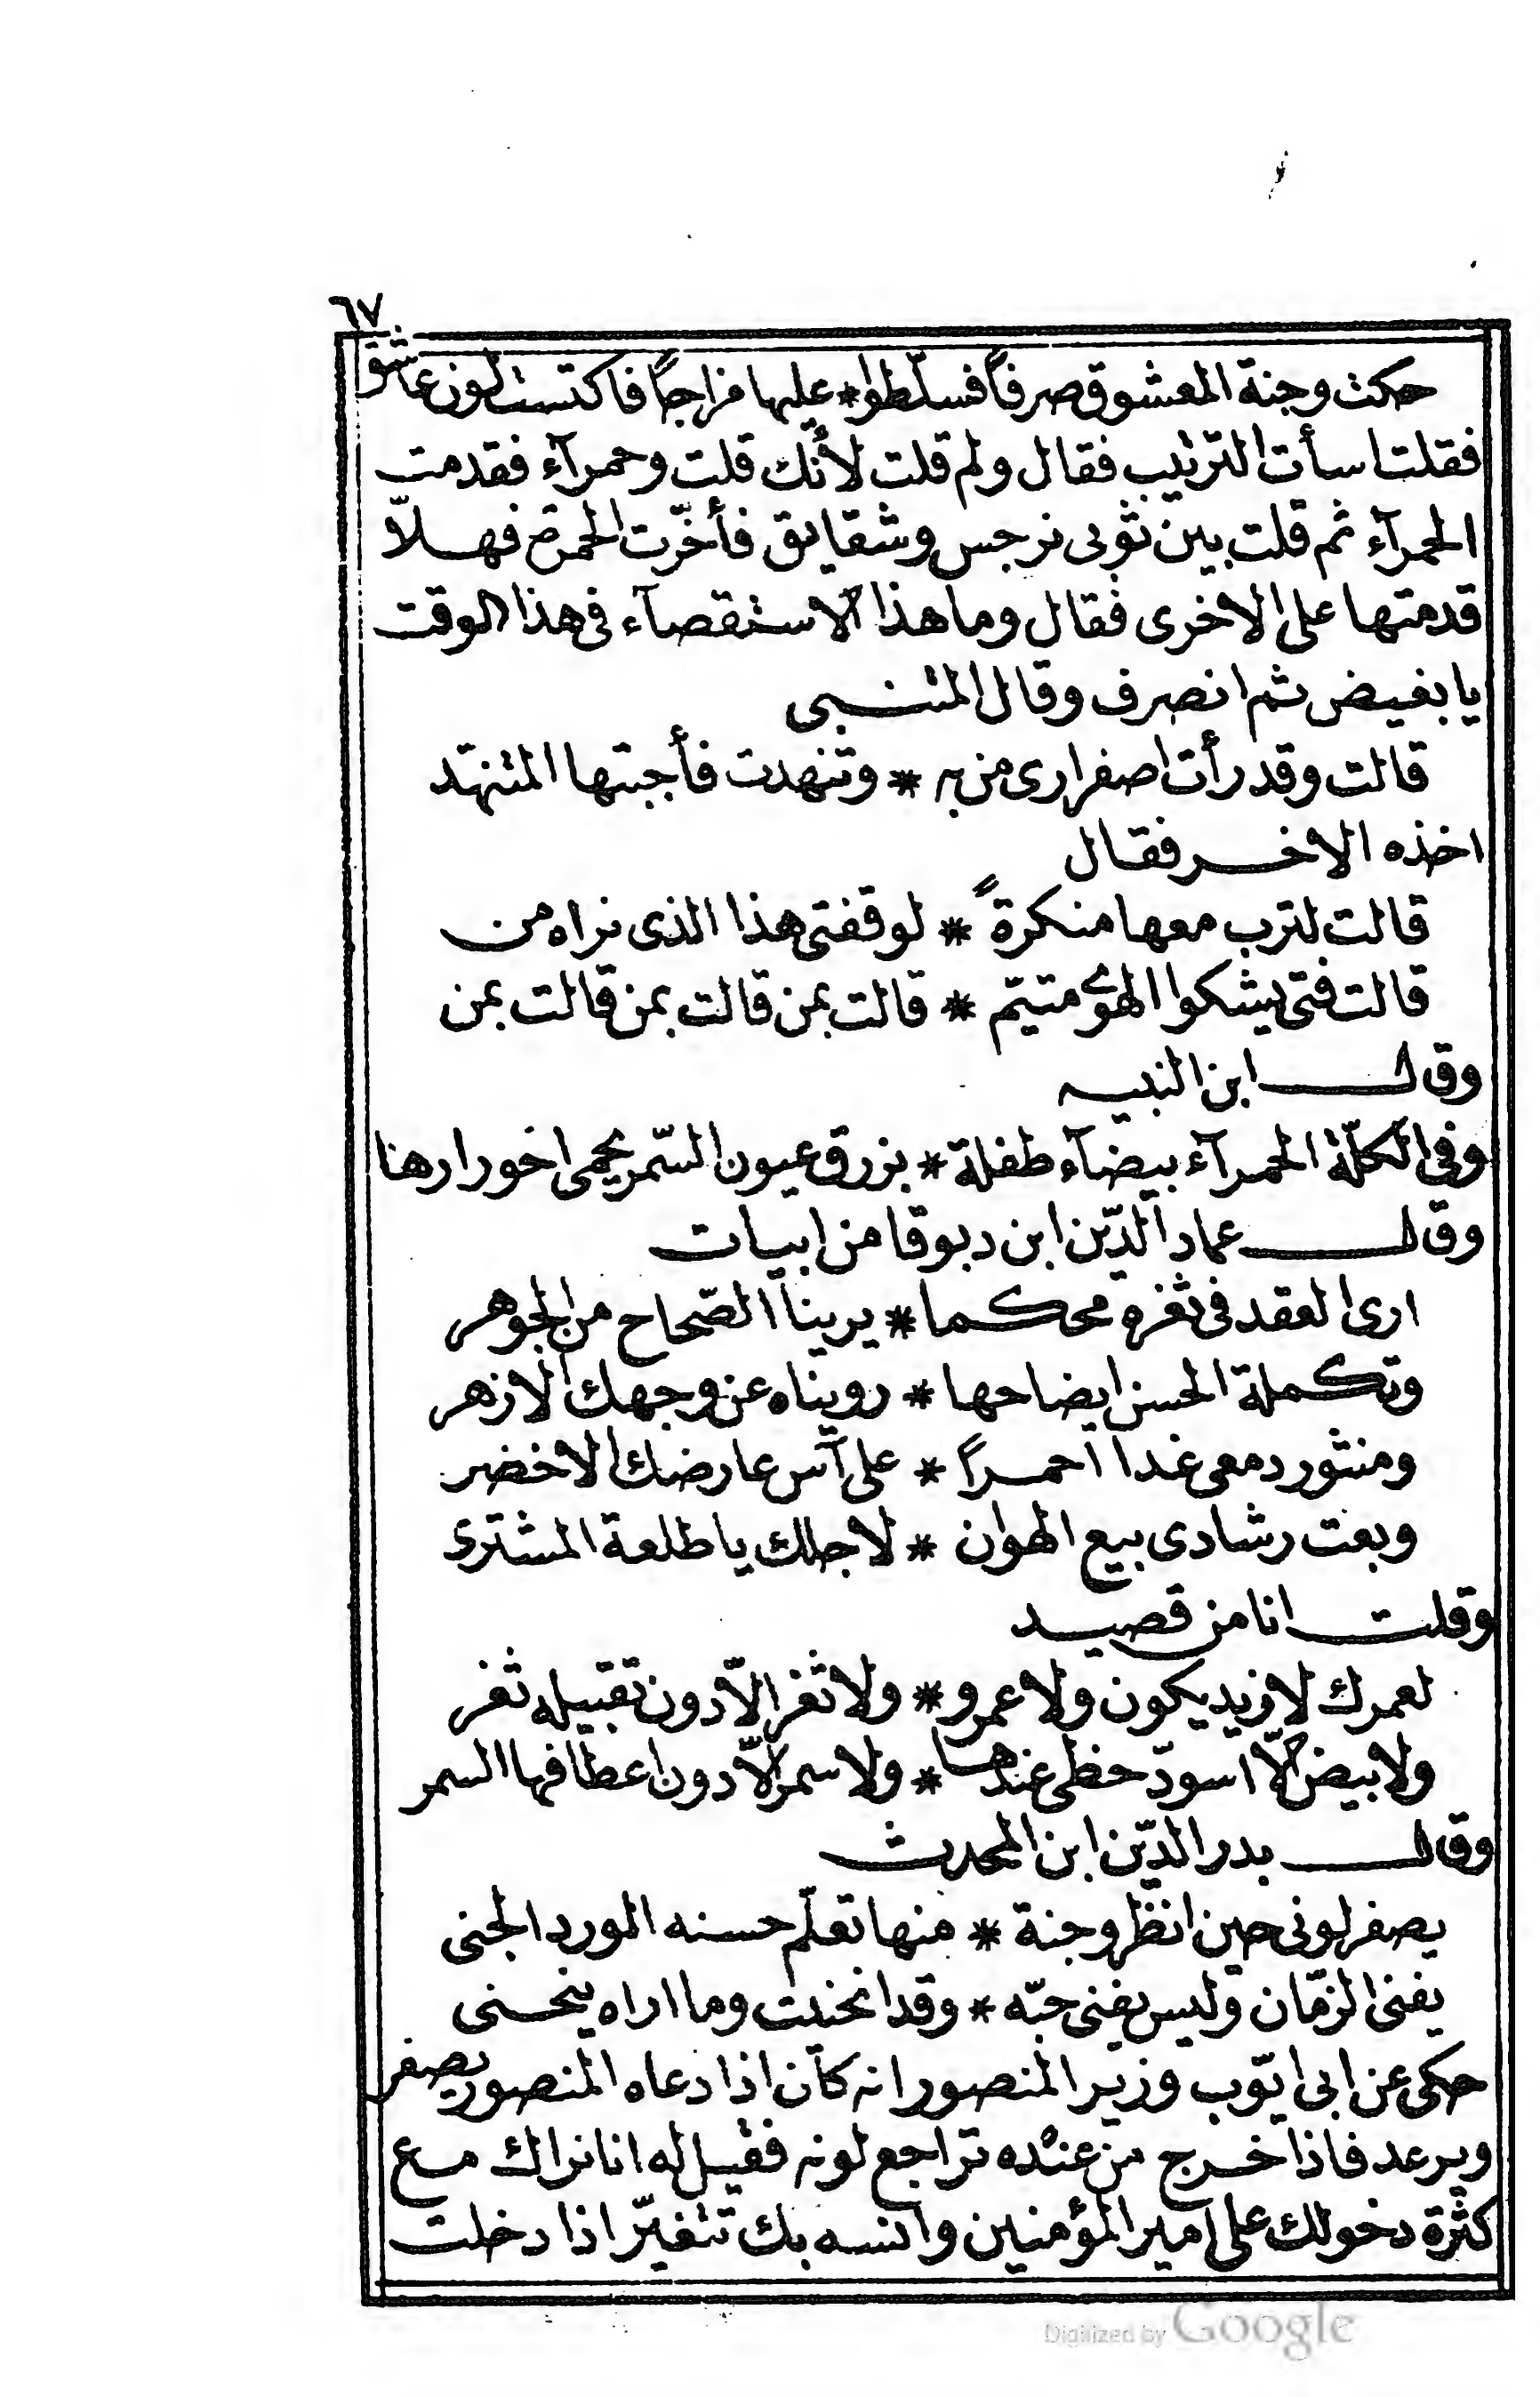 ٦٧
حكت وجنة المعشوق صرفاً فسلّطوا * عليها مزاجاً فاكتست لون عاشق
فقلت اسأت الترتيب فقال ولم قلت لأنك قلت وحمرآء فقدمت
الحمرآء ثم قلت بين ثوبى نرجس وشقايق فأخّرت الحمرة فهلاّ
قدمتها على الاخرى فقال وما هذا الاستقصآء فى هذا الوقت
يا بغيض ثم انصرف وقال المتنبى
قالت وقد رأت اصفرارى من به * وتنهدت فأجبتها المتنهّد
اخذه الاخر فقال
قالت لترب معها منكرةً * لوقفتى هذا الذى نراه من
قالت فتى يشكوا الهوى متيّم * قالت بمن قالت بمن قالت بمن
وقال ابن النبيه
وفى الكلّة الحمرآء بيضآء طفلة * بزرق عيون السّمر يحمى احورارهنا
وقال عماد الدّين ابن دبوقا من ابيات
ارى العقد فى ثغره محكما * يرينا الصّحاح من الجوهر
وتكملة الحسن ايضاحها * رويناه عن وجهك الازهر
ومنثور دمعى غدا احمراً * على آس عارضك الاخضر
وبعت رشادى بيع الهوان * لاجلك يا طلعة المشترى
وقلت انا من قصيد
لعمرك لا زيد يكون ولا عمرو * ولا ثغر الاّ دون تقبيله ثغر
ولا بيض الاّ اسودّ حظى عندها * ولا سمر الاّ دون اعطافها السمر
وقال بدر الدّين ابن المحدث
يصفر لونى حين انظر وجنة * منها تعلّم حسنه الورد الجنى
يفنى الزمّان وليس يفنى حبّه * وقد انحنيت وما اراه ينحنى
حكى عن ابى ايّوب وزير المنصور انه كان اذا دعاه المنصور يصفر
ويرعد فاذا خرج من عنده تراجع لونه فقيل له انا نراك مع
كثرة دخولك على امير المؤمنين وانسه بك تتغيّر اذا دخلت
Digitized by Google